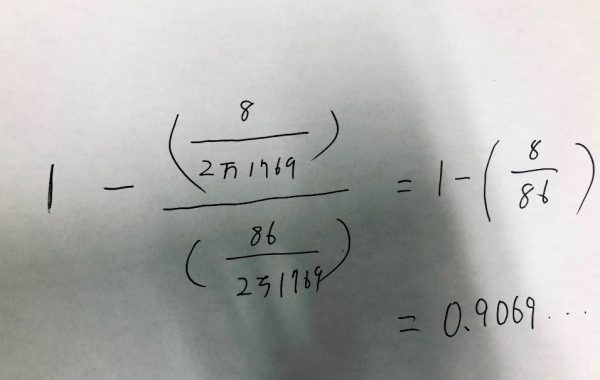 1 - (8/2万1769)/(86/2万1769) = 1-(8/86)
= 0.9069...